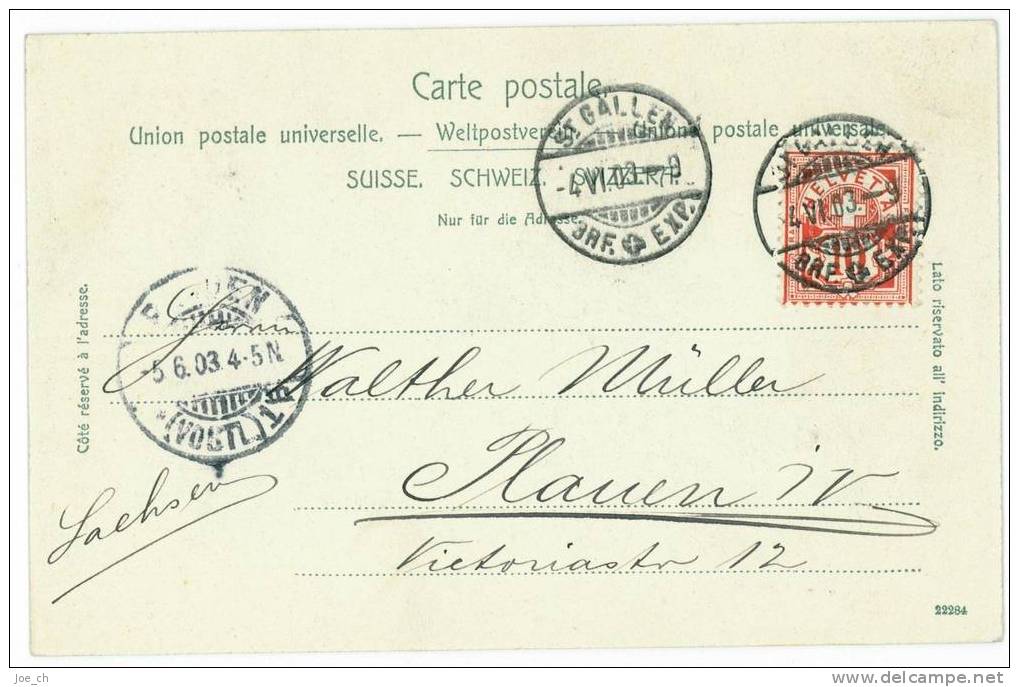 Carte postale.
Union postale universelle. — Weltpostverein. — Unione postale universale.
SUISSE. SCHWEIZ. SVIZZERA.
Nur für die Adresse.
ST. GALLEN
-4.VI.03.-9
BRF. EXP.
ST. GALLEN
4.VI.03.-9
BRF. EXP.
HELVETIA
10
Côté réservé à l'adresse.
Lato riservato all' indirizzo.
-5.6.03.4-5N.
(VOGTL.)
Herrn
Walther Müller
Plauen i/V
Sachsen
Victoriastr 12
22284
Joe_ch
www.delcampe.net